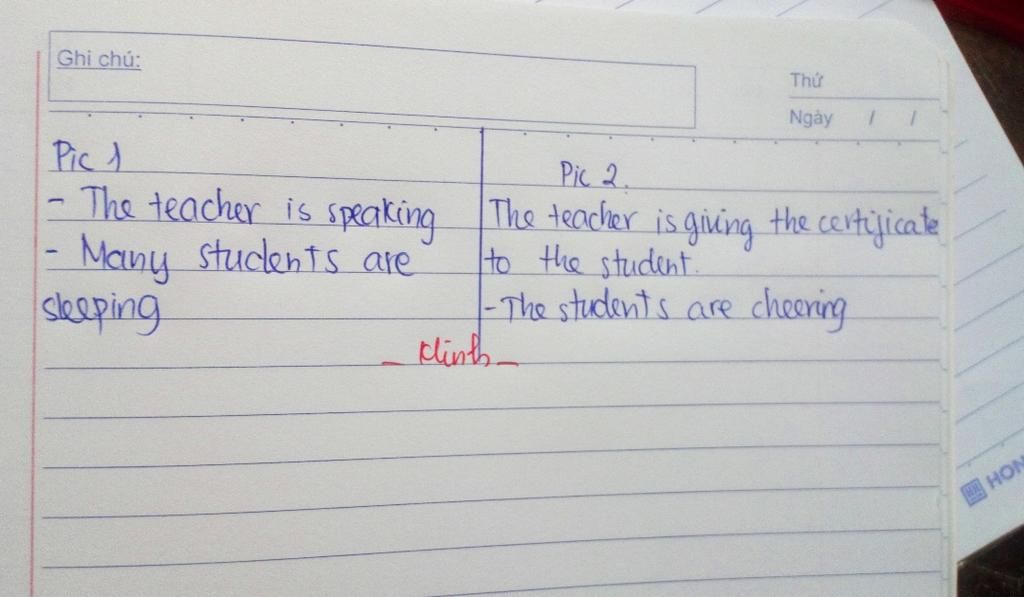 Ghi chú:
Thứ
Ngày / /
Pic 1
- The teacher is speaking
- Many students are
sleeping
Pic 2.
The teacher is giving the certificate
to the student.
- The students are cheering
HON